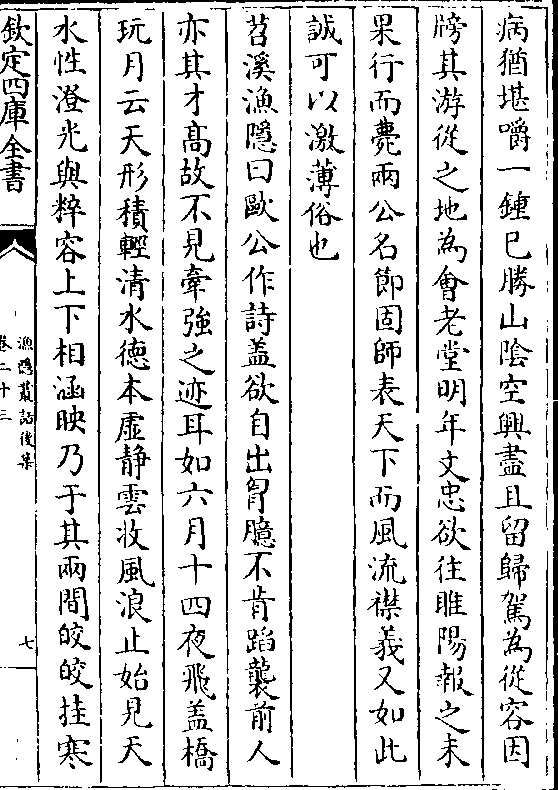 病猶堪嚼一鍾已勝山陰空興盡且留歸駕為從容因
牓其游從之地為會老堂明年文忠欲往睢陽報之未
果行而薨兩公名節固師表天下而風流襟義又如此
誠可以激薄俗也
苕溪漁隠曰歐公作詩盖欲自出胷臆不肯蹈襲前人
亦其才髙故不見牽強之迹耳如六月十四夜飛盖橋
玩月云天形積輕清水徳本虚静雲收風浪止始見天
水性澄光與粹容上下相涵映乃于其兩間皎皎挂寒
欽定四庫全書
漁隠叢話後集
卷二十三
七